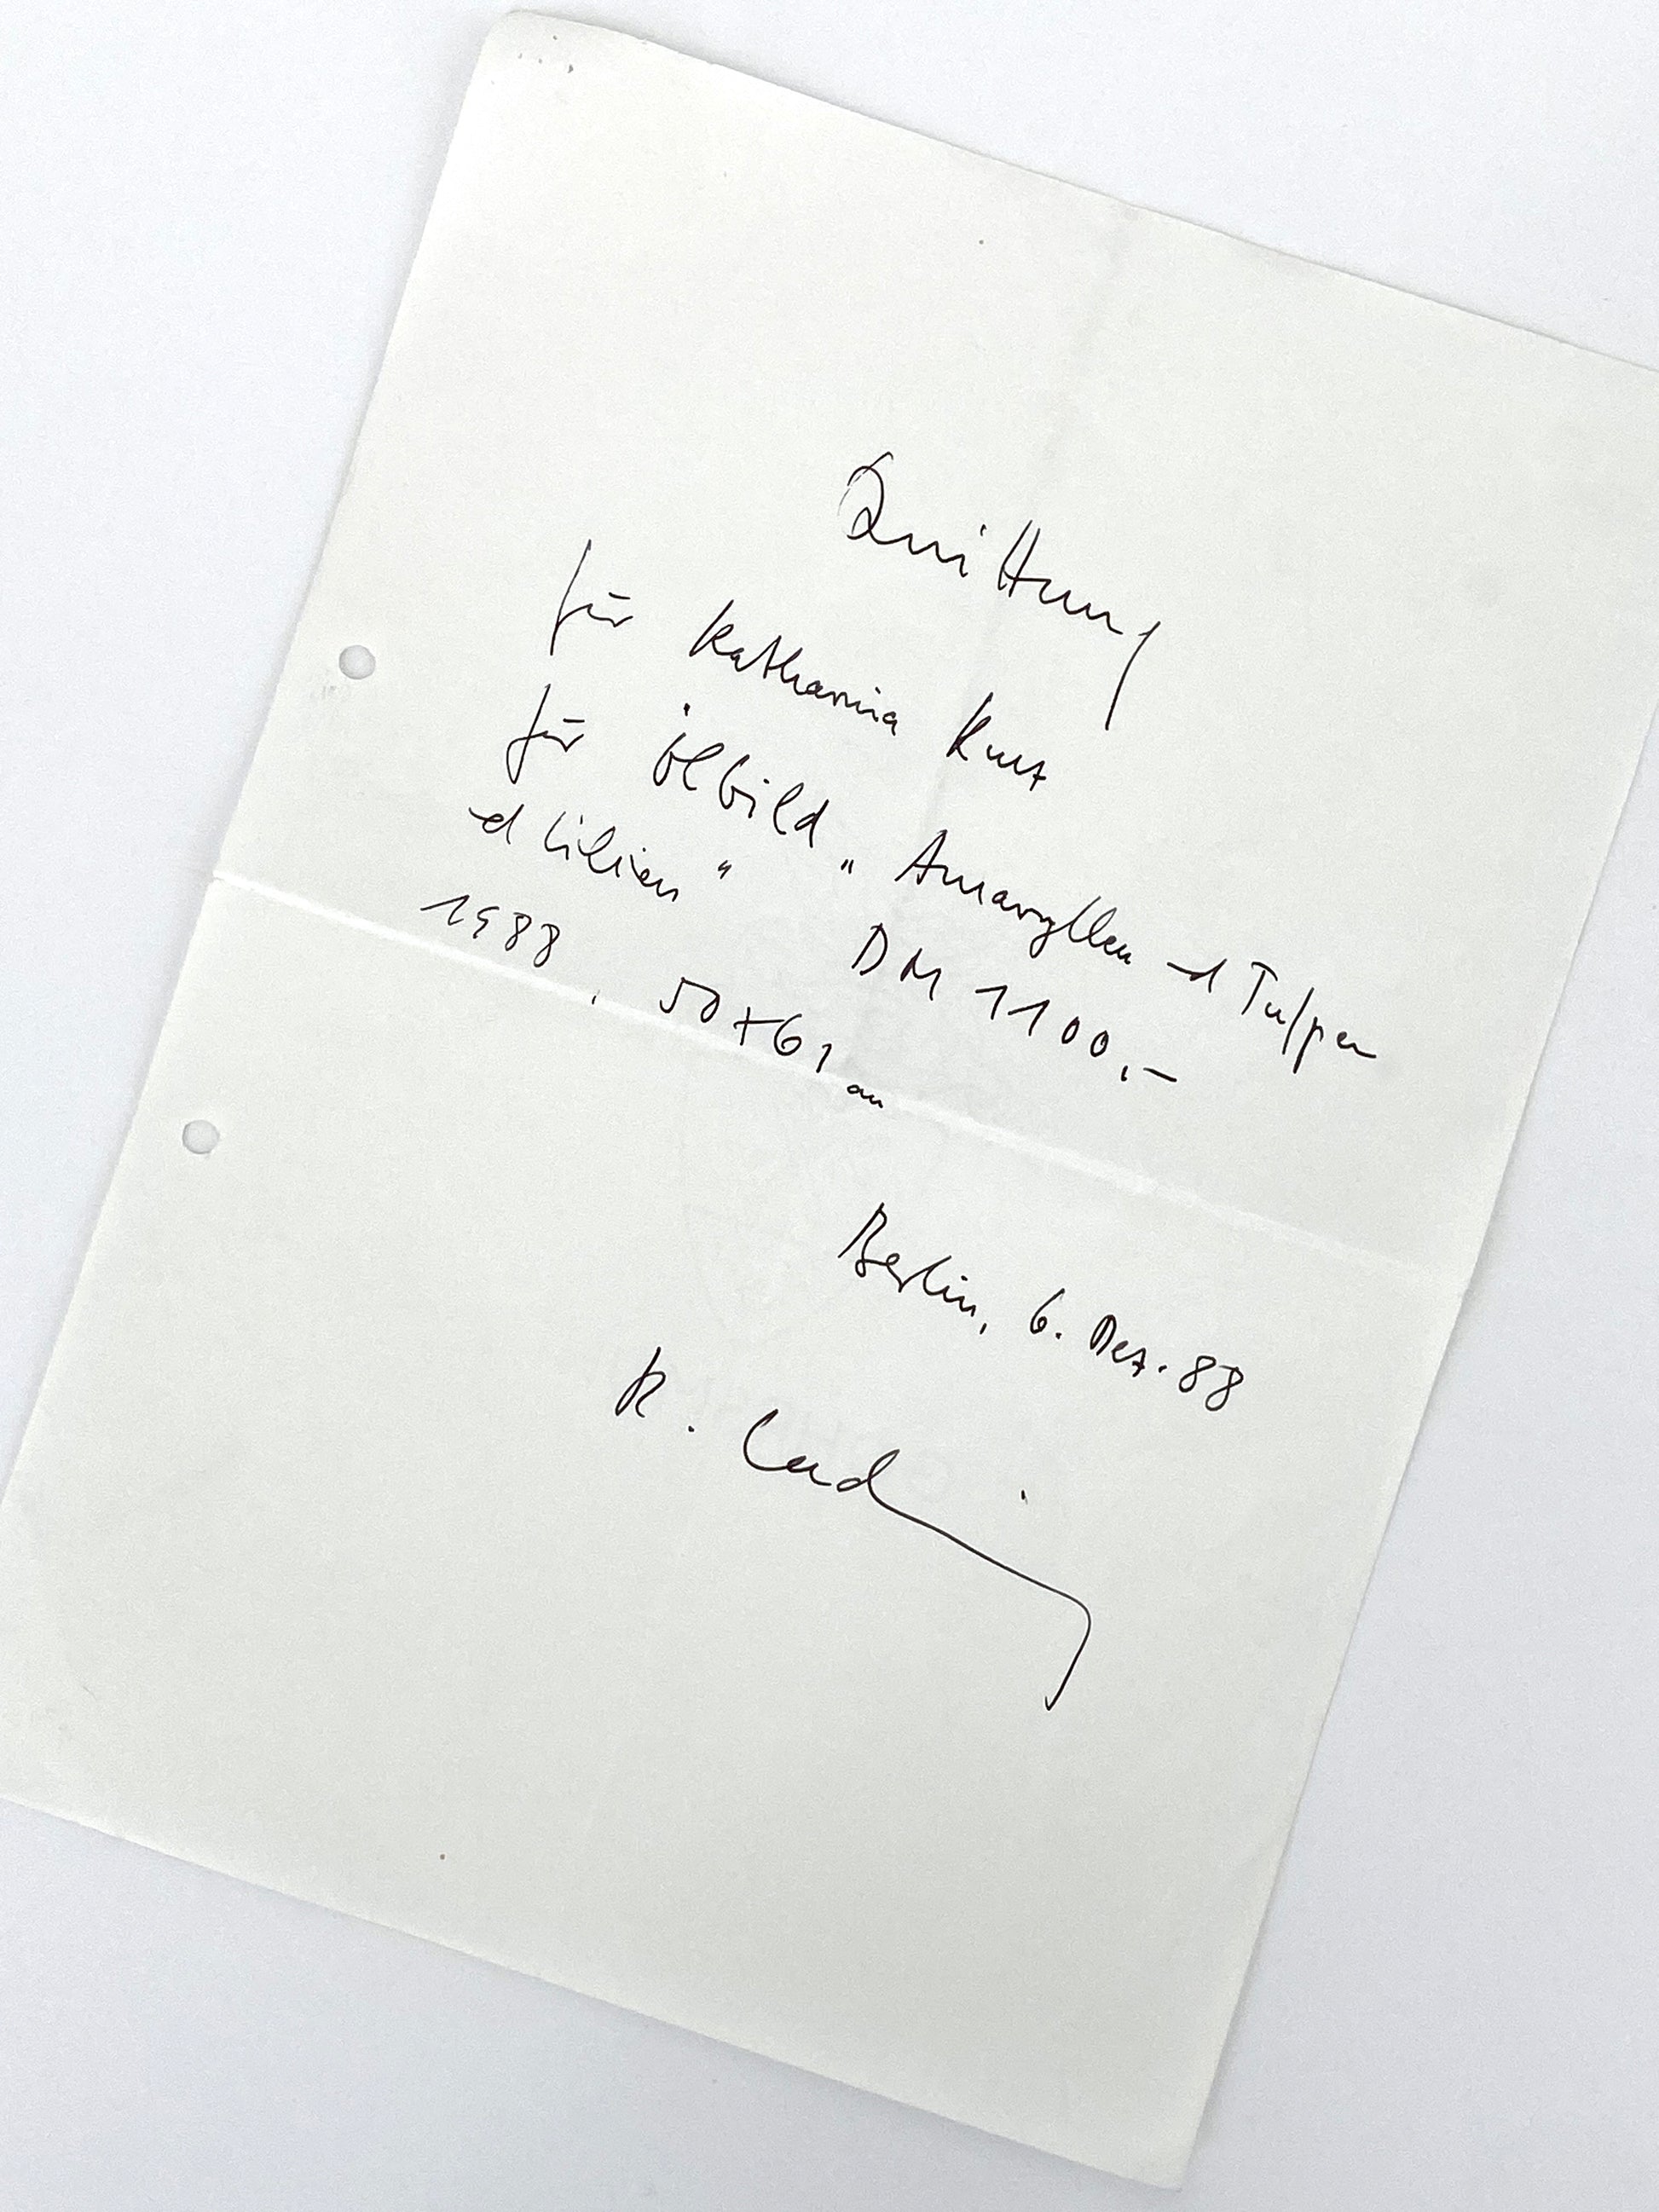 Quittung
für Katharina Kurz
für Ölbild „Amaryllen und Tulpen
und Lilien" DM 1100,-
1988, 50x61 cm
Berlin, 6. Dez. 88
K.